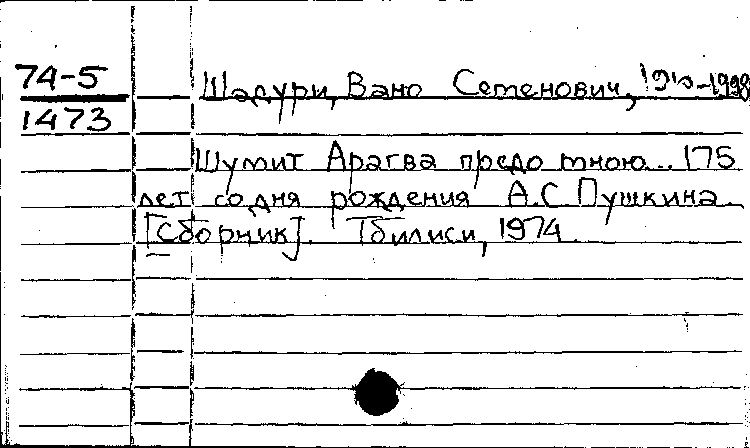 74-5
1473
Шадури, Вано Семенович, -1998
Шумит Арагва предо мною... 175
лет со дня рождения А.С. Пушкина.
[Сборник]. Тбилиси, 1974